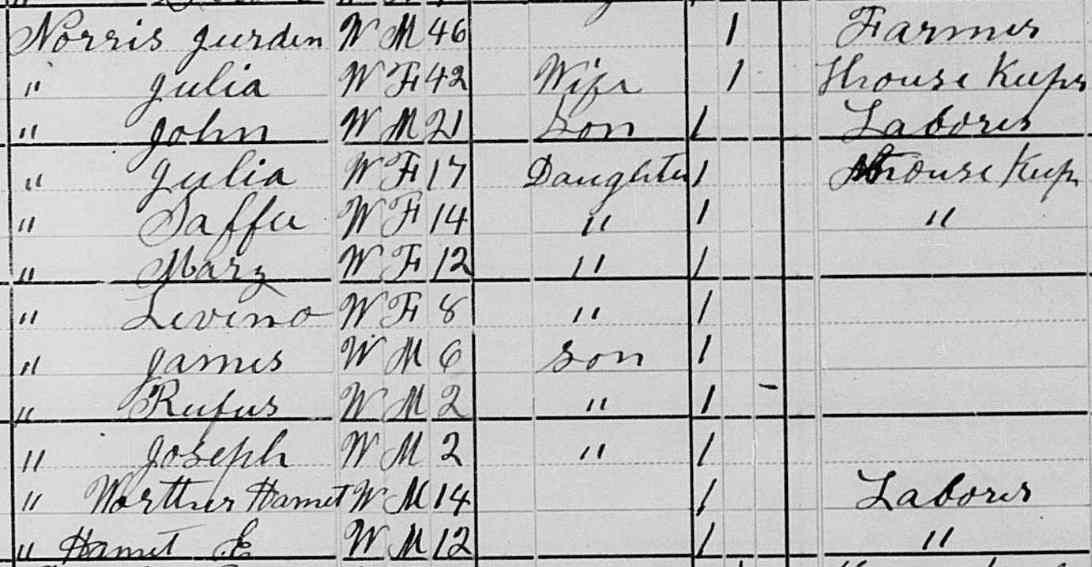 Norris Jurden W M 46 1 Farmer
" Julia W F 42 Wife 1 House Keeper
" John W M 21 Son 1 Laborer
" Julia W F 17 Daughter 1 House Keep
" Saffie W F 14 " 1 "
" Mary W F 12 " 1
" Levino W F 8 " 1
" James W M 6 Son 1
" Rufus W M 2 " 1 -
" Joseph W M 2 " 1
" Hamet W M 14 1 Laborer
" Hamet E W M 12 1 "